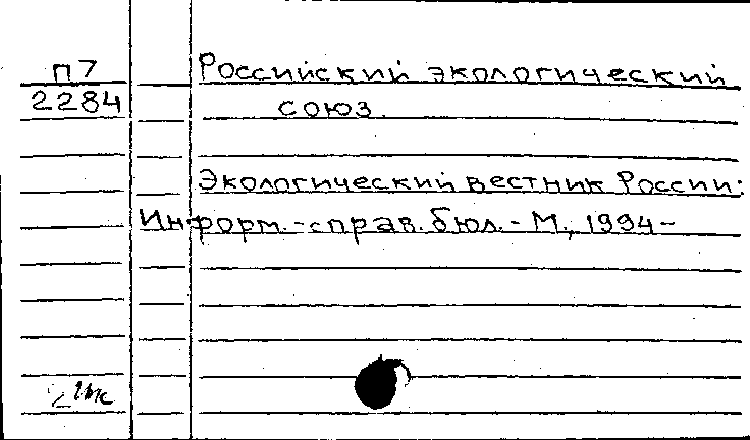 П7
2284
Российский экологический
союз.
Экологический вестник России:
Информ.-справ. бюл. - М., 1994-